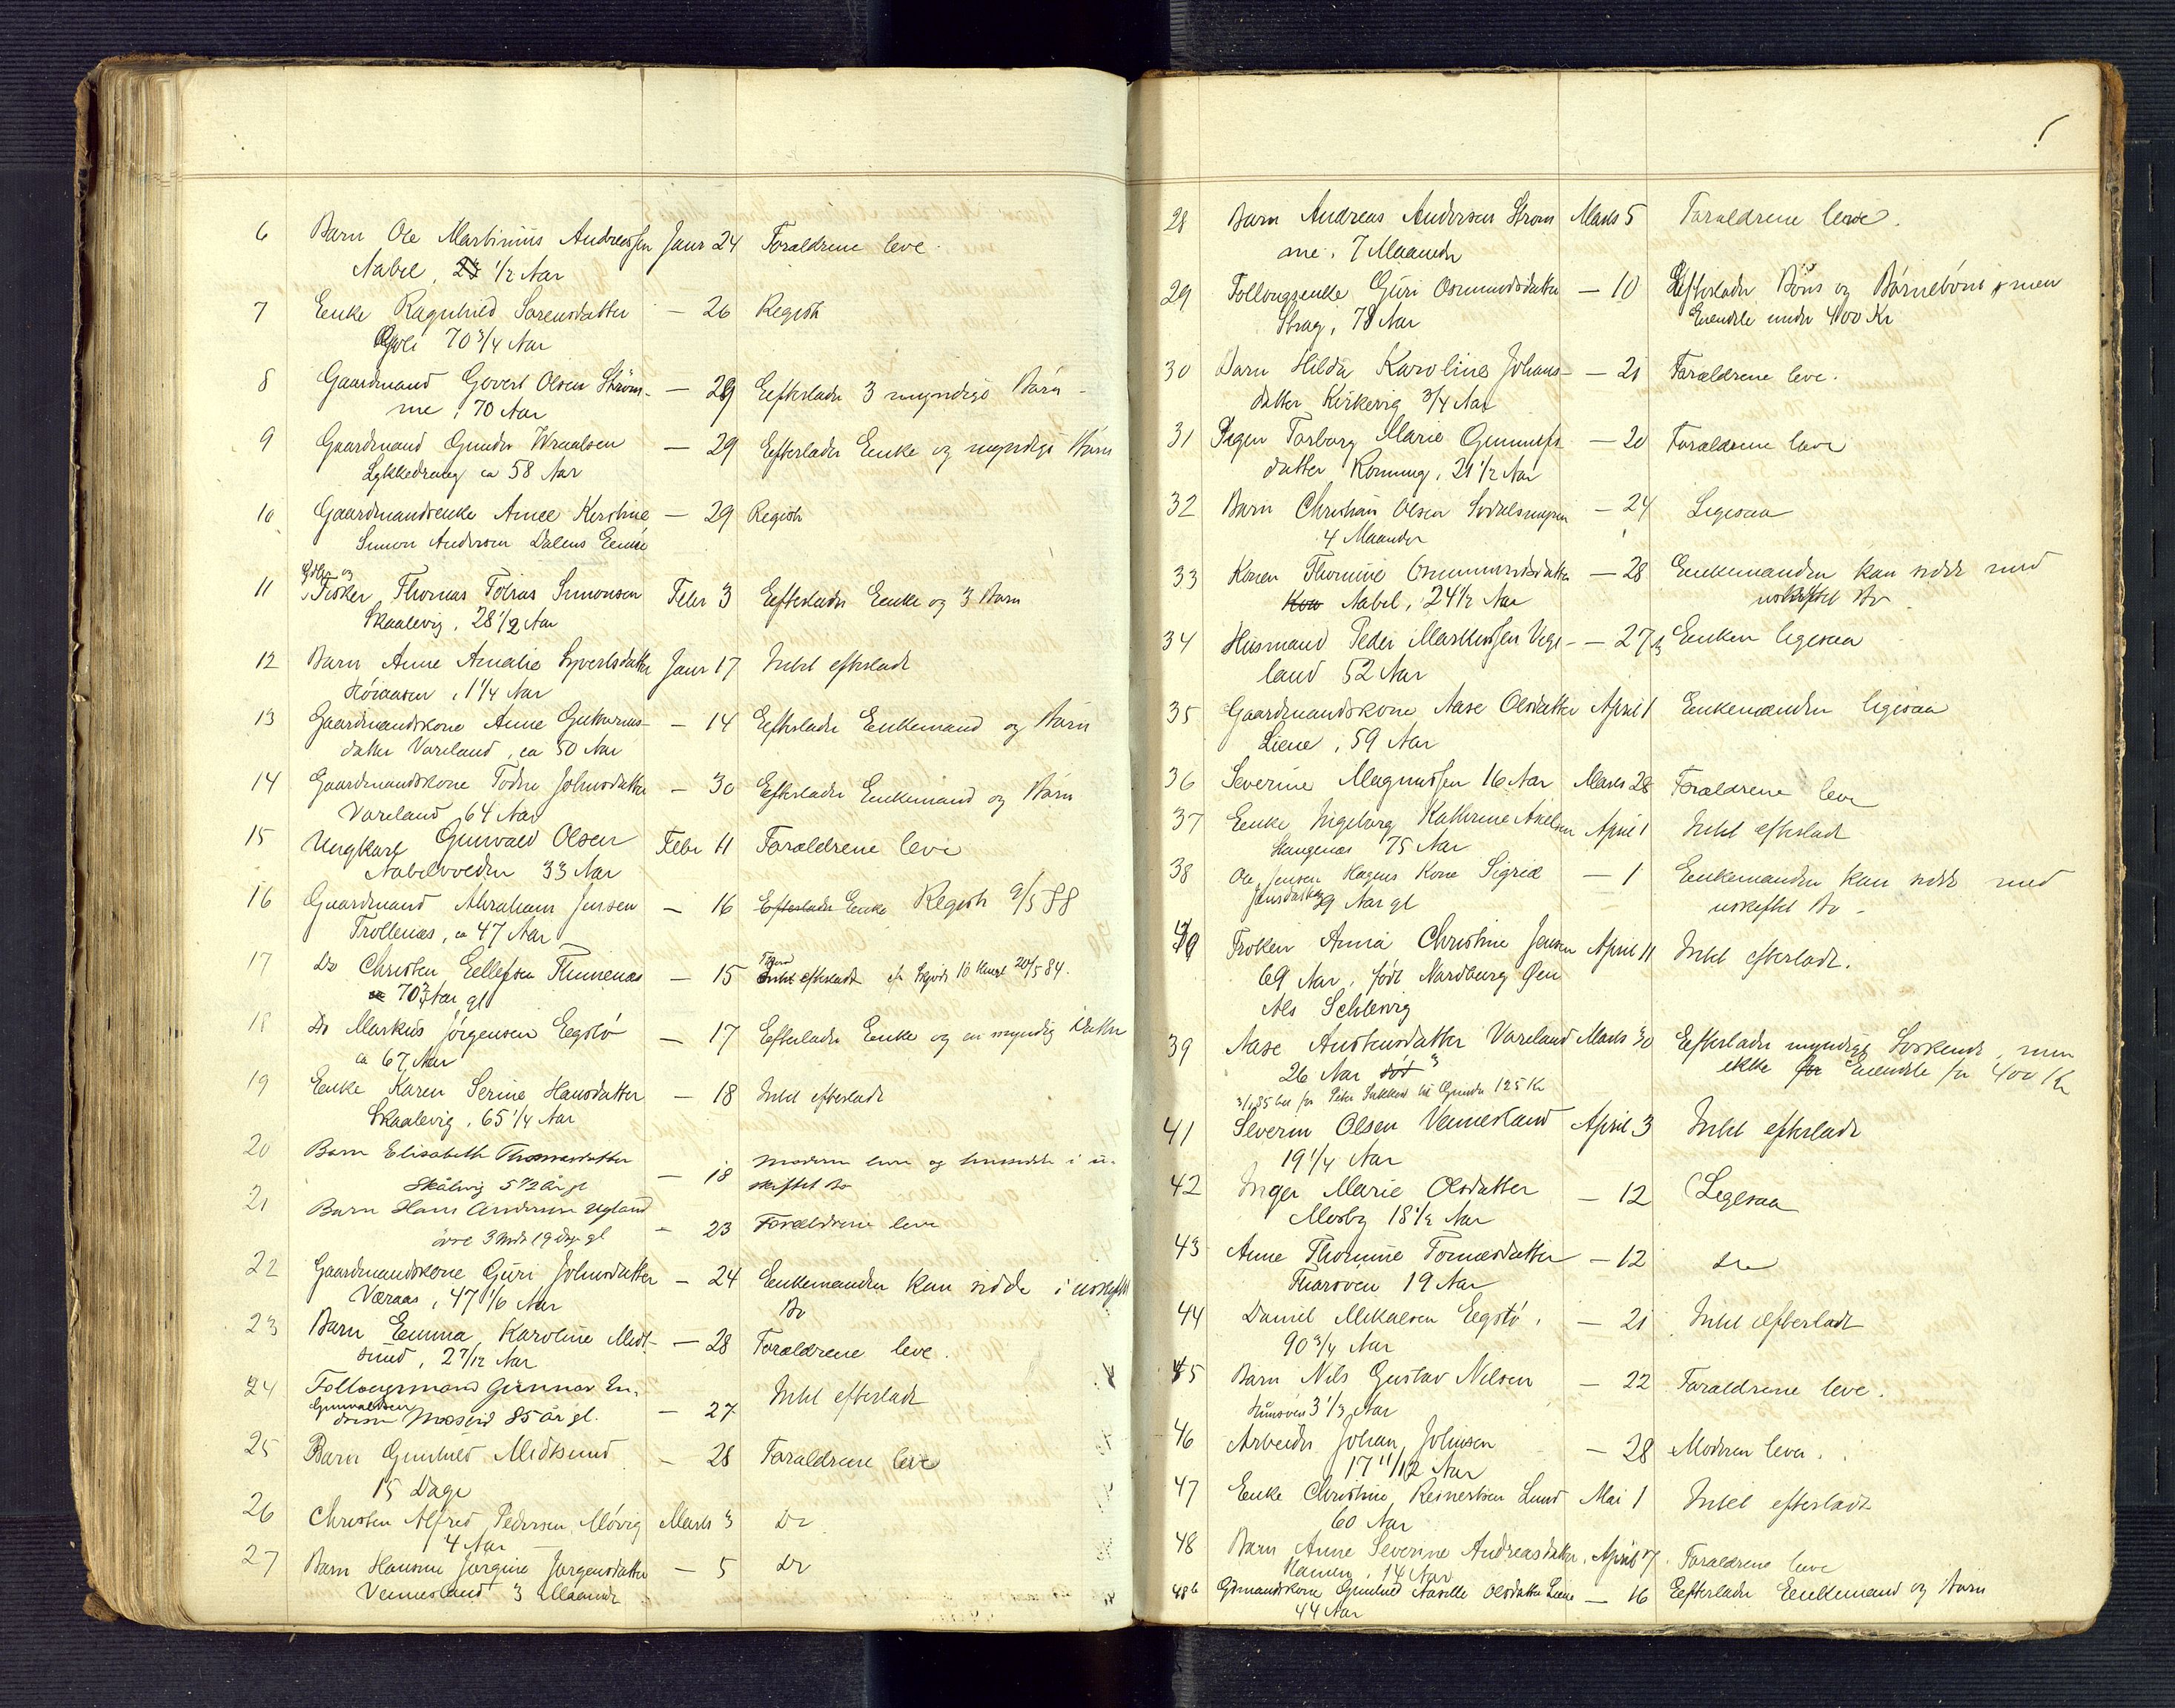 6 Barn Ole Martinius Andreassen Janr 24 Forældrene leve.
Nabel, 1/2 Aar
7 Enke Ragnhild Sørensdatter — 26 Registr
70 3/4 Aar
8 Gaardmand Govert Olsen Strøm- — 29 Efterlader 3 myndige Børn
me, 70 Aar
9 Gaardmand Gunder Wraalsen — 29 Efterlader Enke og myndige Børn
Lykkedrang ca 58 Aar
10 Gaardmandsenke Anne Kirstine — 29 Registr
Simon Andersen Dalens Enke
og
11 Fisker Thomas Tobias Simonsen Febr 3 Efterlader Enke og 3 Børn
Skaalevig, 28 1/2 Aar
12 Barn Anne Amalie Syvertsdatter Janr 17 Intet efterladt
Høiaasen, 1 1/4 Aar
13 Gaardmandskone Anne Guttorms- — 14 Efterlader Enkemand og Børn
datter Vareland, ca 50 Aar
14 Gaardmandskone Todne Johnsdatter — 30 Efterlader Enkemand og Børn
Vareland 64 Aar
15 Ungkarl Gunvald Olsen Febr 11 Forældrene leve
33 Aar
16 Gaardmand Abraham Jensen — 16 Efterlader Enke Registr 9/5 88
Trollenæs, ca 47 Aar
17 Do Christen Eellefsen Flunenæs — 15 Intet efterladt 20/5 84.
70 3/4 Aar gl
18 Do Markus Jørgensen Eegstø — 17 Efterlader Enke og en myndig Datter
ca 67 Aar
19 Enke Karen Serine Hansdatter — 18 Intet efterladt
Skaalevig, 65 1/4 Aar
20 Barn Elisabeth Thomasdatter — 18 Moderen lever og hensidder i u-
Skålevig 5 1/2 år gl skiftet Bo
21 Barn Hans Andersen Ugland — 23 Forældrene leve
3 Mdr 19 Dage gl
22 Gaardmandskone Guri Johnsdatter — 24 Enkemanden kan sidde i uskiftet
Væraas, 47 1/6 Aar Bo
23 Barn Emma Karoline Midt- — 28 Forældrene leve.
sund, 2 7/12 Aar
24 Follougsmand Gunnar — 27 Intet efterladt
Gunvaldsen
Moseid 85 år gl.
25 Barn Gunhild Midtsund — 28 Forældrene leve
15 Dage
26 Christen Alfred Pedersen Møvig Marts 3 Do
4 Aar
27 Barn Hansine Jørgine Jørgensdatter — 5 Do
Vennesland 3 Maaneder
28 Barn Andreas Andersen Strøm Marts 5 Forældrene leve.
me. 7 Maaneder
29 Follougsenke Guri Osmundsdatter — 10 Efterlader Børn og Børnebørn men
Strag, 78 Aar Eiendele under 400 Kr
30 Barn Hilda Karoline Johans- — 21 Forældrene leve.
datter Kirkevig 3/4 Aar
31 Pigen Torborg Marie Gunnufs — 20 Forældrene leve
datter Rønning, 21 1/2 Aar
32 Barn Christian Olsen — 24 Ligesaa
4 Maaneder
33 Konen Thomine Osmundsdatter — 28 Enkemanden kan sidde med
Nabel, 24 1/2 Aar uskiftet Bo
34 Husmand Peder Markussen Vege- — 27 Enken ligesaa
land 52 Aar
35 Gaardmandskone Aase Olsdatter April 1 Enkemanden ligesaa
Liene, 59 Aar
36 Severine Magnussen 16 Aar Marts 28 Forældrene leve
37 Enke Ingeborg Kathrine Axelsen April 1 Intet efterladt
Stangenæs 75 Aar
38 Ole Jensen Hagens Kone Sigrid — 1 Enkemanden kan sidde med
Jensdatter 39 Aar gl uskiftet Bo -
40 Frøken Anna Christine Jensen April 11 Intet efterladt.
69 Aar, født Nordborg Øen
Als Schlesvig
39 Aase Austensdatter Vareland Marts 30 Efterlader myndige Søskende, men
26 Aar ikke Eiendele for 400 Kr
125 Kr
41 Severin Olsen Vennesland April 3 Intet efterladt
19 1/4 Aar
42 Inger Marie Olsdatter — 12 Ligesaa
Mosby 18 1/2 Aar
43 Anne Thomine Tomasdatter — 12 do
19 Aar
44 Daniel Mikalsen Eegstø, — 21 Intet efterladt
90 3/4 Aar
45 Barn Nils Gustav Nilsen — 22 Forældrene leve.
3 1/3 Aar
46 Arbeider Johan Johnsen — 28 Moderen lever.
17 11/12 Aar
47 Enke Christine Reinertsen Lund Mai 1 Intet efterladt
60 Aar
48 Barn Anne Severine Andreasdatter, April 7. Forældrene leve
Hamen, 14 Aar
48b Gdmandskone Gunhild Olsdatter Liene — 16 Efterlader Enkemand og Børn
44 Aar